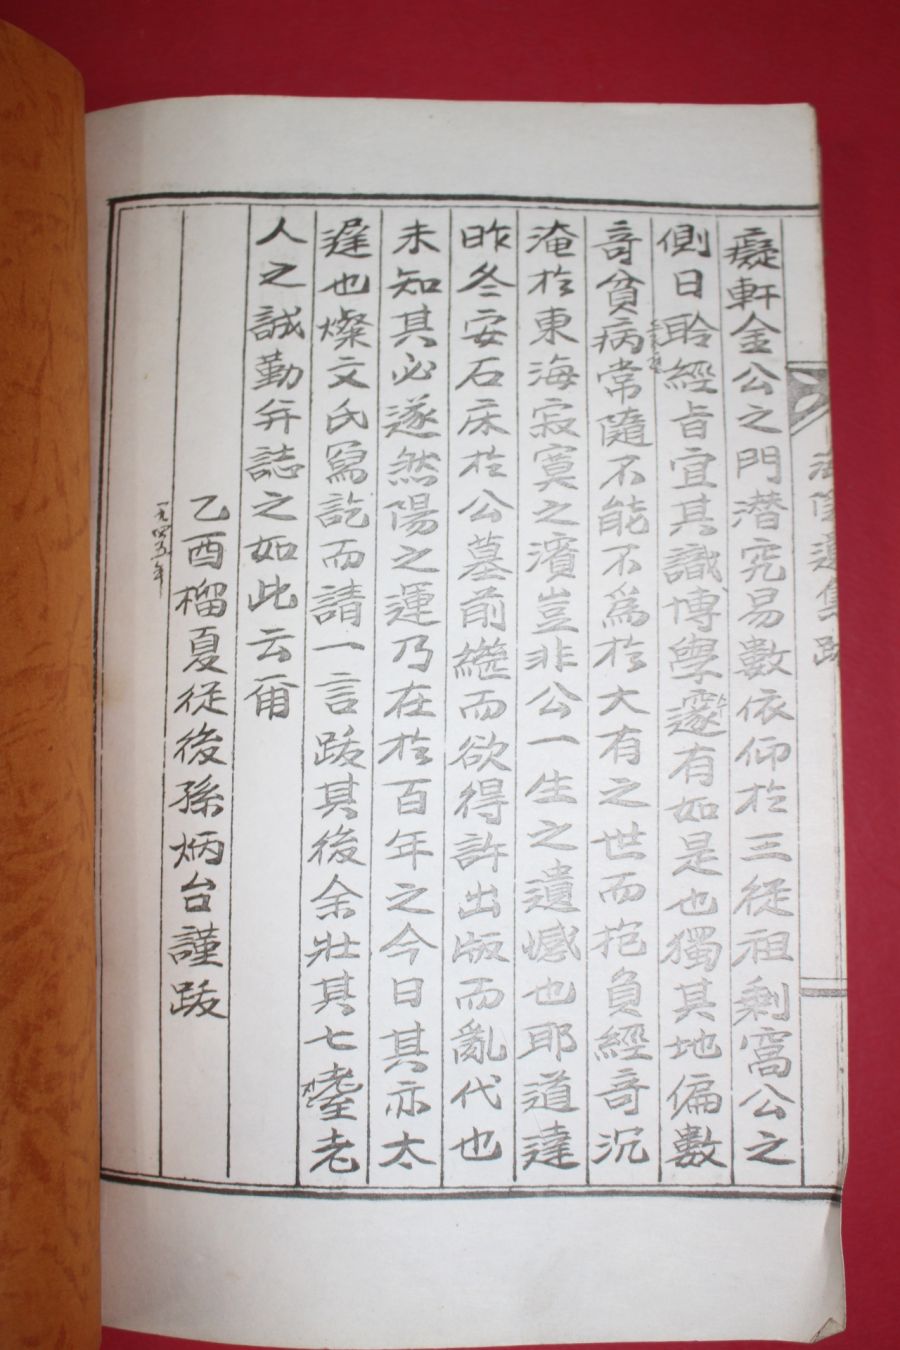 癡軒金公之門潛究易數依仰於三從祖剩窩公之
側日聆經旨宜其識博學邃有如是也獨其地偏數
奇貧病常隨不能不爲於大有之世而抱負經奇沉
淹於東海寂寞之濱豈非公一生之遺憾也耶道達
昨冬安石床於公墓前繼而欲得許出版而亂代也
未知其必遂然陽之運乃在於百年之今日其亦太
遲也燦文氏寫訖而請一言跋其後余壯其七耋老
人之誠勤并誌之如此云爾
乙酉榴夏從後孫炳台謹跋
一九四五年